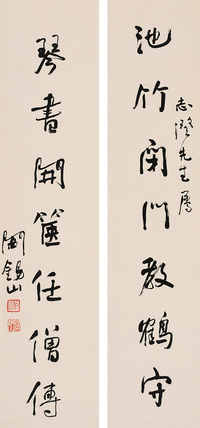 池竹閉門教鶴守
志澄先生屬
琴書開篋任僧傳
閻錫山